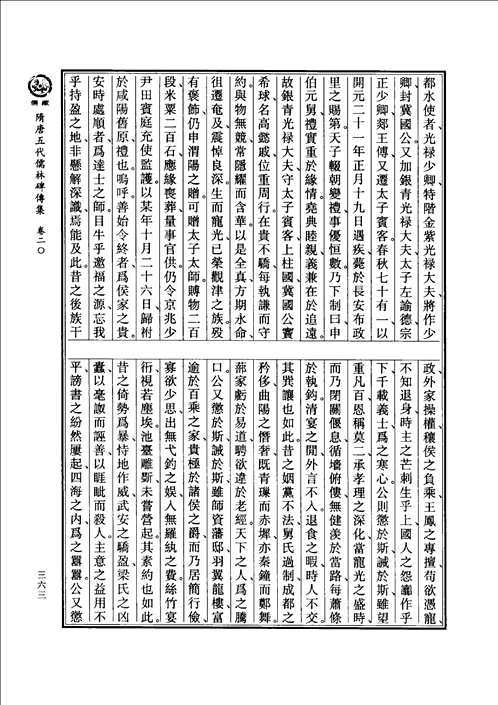 都水使者光禄少卿特階金紫光禄大夫將作少
卿封冀國公又加銀青光禄大夫太子左諭德宗
正少卿郯王傅又遷太子賓客春秋七十有一以
開元二十一年正月十九日遇疾薨於長安布政
里之賜第天子輟朝變禮事優恒數乃下制曰申
伯元舅禮實重於緣情堯典睦親義兼在於追遠
故銀青光禄大夫守太子賓客上柱國冀國公竇
希球名高懿戚位重周行在貴不驕每執謙而守
約與物無競常隱耀而含華以是全真方期永命
徂遷奄及震悼良深生而寵光已榮觀津之族殁
有褒飾仍申渭陽之贈可贈太子太師賻物二百
段米粟二百石應緣喪葬量事官供仍令京兆少
尹田賓庭充使監護以某年十月二十六日歸祔
於咸陽舊原禮也嗚呼善始令終者爲侯家之貴
安時處順者爲達士之師目牛乎邀福之源忘我
乎持盈之地非懸解深識焉能及此昔之後族干
政外家操權穰侯之負乘王鳳之專擅苟欲憑寵
不知退身時主之芒刺生乎上國人之怨讟作乎
下千載義士爲之寒心公則懲於斯誡於斯雖望
重凡百恩稱莫二承孝理之深化當寵光之盛時
而乃閉關偃息循墻俯僂無健羨於當路每蕭條
於執鈞清宴之閒外言不入退食之暇時人不交
其巽讓也如此昔之姻黨不法舅氏過制成都之
矜侈曲陽之僭奢既青璅而赤墀亦秦鐘而鄭舞
蔀家虧於易道騁欲違於老經天下之人爲之騰
口公又懲於斯誡於斯雖師資藩邸羽翼龍樓富
逾於百乘之家貴極於諸侯之爵而乃居簡行儉
寡欲少思出無弋釣之娱人無羅紈之費絲竹宴
衎視若塵埃池臺雕斲未嘗營起其素約也如此
昔之倚勢爲暴恃地作威武安之驕盈梁氏之凶
蠹以毫譤而誣善以睚眦而殺人主意之益用不
平謗書之紛然屢起四海之内爲之囂囂公又懲
儒藏
隋唐五代儒林碑傳集 卷二〇
三六三